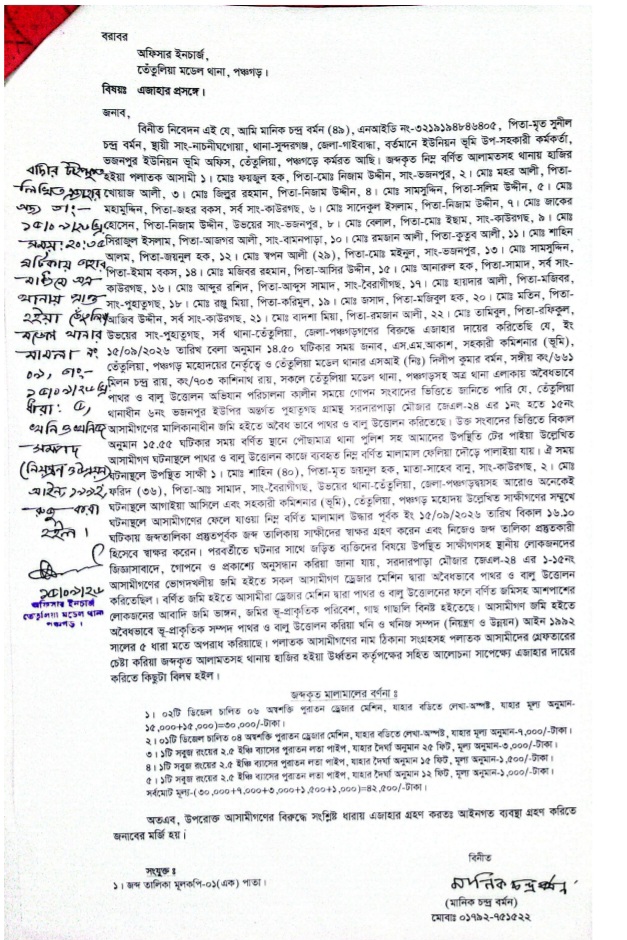 বরাবর
অফিসার ইনচার্জ,
তেঁতুলিয়া মডেল থানা, পঞ্চগড়।
বিষয়ঃ এজাহার প্রসঙ্গে।
জনাব,
বিনীত নিবেদন এই যে, আমি মানিক চন্দ্র বর্মন (৪৯), এনআইডি নং-৩২১৯১৯৪৮৪৬৪০৫, পিতা-মৃত সুনীল
চন্দ্র বর্মন, স্থায়ী সাং-নাচনীঘগোয়া, থানা-সুন্দরগঞ্জ, জেলা-গাইবান্ধা, বর্তমানে ইউনিয়ন ভূমি উপ-সহকারী কর্মকর্তা,
ভজনপুর ইউনিয়ন ভূমি অফিস, তেঁতুলিয়া, পঞ্চগড়ে কর্মরত আছি। জব্দকৃত নিম্ন বর্ণিত আলামতসহ থানায় হাজির
হইয়া পলাতক আসামী ১। মোঃ ফয়জুল হক, পিতা-মোঃ নিজাম উদ্দীন, সাং-ভজনপুর, ২। মোঃ মহর আলী, পিতা-
খোয়াজ আলী, ৩। মোঃ জিলুর রহমান, পিতা-নিজাম উদ্দীন, ৪। মোঃ সামসুদ্দিন, পিতা-সলিম উদ্দীন, ৫। মোঃ
মহামুদ্দিন, পিতা-জহর বকস, সর্ব সাং-কাউরগছ, ৬। মোঃ সাদেকুল ইসলাম, পিতা-নিজাম উদ্দীন, ৭। মোঃ জাকের
হোসেন, পিতা-নিজাম উদ্দীন, উভয়ের সাং-ভজনপুর, ৮। মোঃ বেলাল, পিতা-মোঃ ইছাম, সাং-কাউরগছ, ৯। মোঃ
সিরাজুল ইসলাম, পিতা-আজগর আলী, সাং-বামনপাড়া, ১০। মোঃ রমজান আলী, পিতা-কুতুব আলী, ১১। মোঃ শাহিন
আলম, পিতা-জয়নুল হক, ১২। মোঃ স্বপন আলী (২৯), পিতা-মোঃ মইনুল, সাং-ভজনপুর, ১৩। মোঃ সামসুদ্দিন,
পিতা-ইমাম বকস, ১৪। মোঃ মজিবর রহমান, পিতা-আসির উদ্দীন, ১৫। মোঃ আনারুল হক, পিতা-সামাদ, সর্ব সাং-
কাউরগছ, ১৬। মোঃ আব্দুর রশিদ, পিতা-আব্দুস সামাদ, সাং-বৈরাগীগছ, ১৭। মোঃ হায়দার আলী, পিতা-মজিবর,
সাং-পুহাতুগছ, ১৮। মোঃ রঞ্জু মিয়া, পিতা-করিমুল, ১৯। মোঃ জসাদ, পিতা-মজিবুল হক, ২০। মোঃ মতিন, পিতা-
আজিব উদ্দীন, সর্ব সাং-কাউরগছ, ২১। মোঃ বাদশা মিয়া, পিতা-রমজান আলী, ২২। মোঃ তামিবুল, পিতা-রফিকুল,
উভয়ের সাং-পুহাতুগছ, সর্ব থানা-তেঁতুলিয়া, জেলা-পঞ্চগড়গণের বিরুদ্ধে এজাহার দায়ের করিতেছি যে, ইং
১৫/০৯/২০২৬ তারিখ বেলা অনুমান ১৪.৫০ ঘটিকার সময় জনাব, এস.এম.আকাশ, সহকারী কমিশনার (ভূমি),
তেঁতুলিয়া, পঞ্চগড় মহোদয়ের নেতৃত্বে ও তেঁতুলিয়া মডেল থানার এসআই (নিঃ) দিলীপ কুমার বর্মন, সঙ্গীয় কং/৬৬১
মিলন চন্দ্র রায়, কং/৭০৩ কাশিনাথ রায়, সকলে তেঁতুলিয়া মডেল থানা, পঞ্চগড়সহ অত্র থানা এলাকায় অবৈধভাবে
পাথর ও বালু উত্তোলন অভিযান পরিচালনা কালীন সময়ে গোপন সংবাদের ভিত্তিতে জানিতে পারি যে, তেঁতুলিয়া
থানাধীন ৬নং ভজনপুর ইউপির অন্তর্গত পুহাতুগছ গ্রামস্থ সরদারপাড়া মৌজার জেএল-২৪ এর ১নং হতে ১৫নং
আসামীগণের মালিকানাধীন জমি হইতে অবৈধ ভাবে পাথর ও বালু উত্তোলন করিতেছে। উক্ত সংবাদের ভিত্তিতে বিকাল
অনুমান ১৫.৫৫ ঘটিকার সময় বর্ণিত স্থানে পৌছামাত্র থানা পুলিশ সহ আমাদের উপস্থিতি টের পাইয়া উল্লেখিত
আসামীগণ ঘটনাস্থলে পাথর ও বালু উত্তোলন কাজে ব্যবহৃত নিম্ন বর্ণিত মালামাল ফেলিয়া দৌড়ে পালাইয়া যায়। ঐ সময়
ঘটনাস্থলে উপস্থিত সাক্ষী ১। মোঃ শাহিন (৪০), পিতা-মৃত জয়নুল হক, মাতা-সাহেব বানু, সাং-কাউরগছ, ২। মোঃ
ফরিদ (৩৬), পিতা-আঃ সামাদ, সাং-বৈরাগীগছ, উভয়ের থানা-তেঁতুলিয়া, জেলা-পঞ্চগড়দ্বয়সহ আরোও অনেকেই
ঘটনাস্থলে আগাইয়া আসিলে এবং সহকারী কমিশনার (ভূমি), তেঁতুলিয়া, পঞ্চগড় মহোদয় উল্লেখিত সাক্ষীগণের সম্মুখে
ঘটনাস্থলে আসামীগণের ফেলে যাওয়া নিম্ন বর্ণিত মালামাল উদ্ধার পূর্বক ইং ১৫/০৯/২০২৬ তারিখ বিকাল ১৬.১০
ঘটিকায় জব্দতালিকা প্রস্তুতপূর্বক জব্দ তালিকায় সাক্ষীদের স্বাক্ষর গ্রহণ করেন এবং নিজেও জব্দ তালিকা প্রস্তুতকারী
হিসেবে স্বাক্ষর করেন। পরবর্তীতে ঘটনার সাথে জড়িত ব্যক্তিদের বিষয়ে উপস্থিত সাক্ষীগণসহ স্থানীয় লোকজনদের
জিজ্ঞাসাবাদে, গোপনে ও প্রকাশ্যে অনুসন্ধান করিয়া জানা যায়, সরদারপাড়া মৌজার জেএল-২৪ এর ১-১৫নং
আসামীগণের ভোগদখলীয় জমি হইতে সকল আসামীগণ ড্রেজার মেশিন দ্বারা অবৈধভাবে পাথর ও বালু উত্তোলন
করিতেছিল। বর্ণিত জমি হইতে আসামীরা ড্রেজার মেশিন দ্বারা পাথর ও বালু উত্তোলনের ফলে বর্ণিত জমিসহ আশপাশের
লোকজনের আবাদি জমি ভাঙ্গন, জমির ভূ-প্রাকৃতিক পরিবেশ, গাছ গাছালি বিনষ্ট হইতেছে। আসামীগণ জমি হইতে
অবৈধভাবে ভূ-প্রাকৃতিক সম্পদ পাথর ও বালু উত্তোলন করিয়া খনি ও খনিজ সম্পদ (নিয়ন্ত্রণ ও উন্নয়ন) আইন ১৯৯২
সালের ৫ ধারা মতে অপরাধ করিয়াছে। পলাতক আসামীগণের নাম ঠিকানা সংগ্রহসহ পলাতক আসামীদের গ্রেফতারের
চেষ্টা করিয়া জব্দকৃত আলামতসহ থানায় হাজির হইয়া উর্ধ্বতন কর্তৃপক্ষের সহিত আলোচনা সাপেক্ষ্যে এজাহার দায়ের
করিতে কিছুটা বিলম্ব হইল।
জব্দকৃত মালামালের বর্ণনা ঃ
১। ০২টি ডিজেল চালিত ০৬ অশ্বশক্তি পুরাতন ড্রেজার মেশিন, যাহার বডিতে লেখা-অস্পষ্ট, যাহার মূল্য অনুমান-
১৫,০০০+১৫,০০০)=৩০,০০০/-টাকা।
২। ০১টি ডিজেল চালিত ০৪ অশ্বশক্তি পুরাতন ড্রেজার মেশিন, যাহার বডিতে লেখা-অস্পষ্ট, যাহার মূল্য অনুমান-৭,০০০/-টাকা।
৩। ১টি সবুজ রংয়ের ২.৫ ইঞ্চি ব্যাসের পুরাতন লতা পাইপ, যাহার দৈর্ঘ্য অনুমান ২৫ ফিট, মূল্য অনুমান-৩,০০০/-টাকা।
৪। ১টি সবুজ রংয়ের ২.৫ ইঞ্চি ব্যাসের পুরাতন লতা পাইপ, যাহার দৈর্ঘ্য অনুমান ১৫ ফিট, মূল্য অনুমান-১,৫০০/-টাকা।
৫। ১টি সবুজ রংয়ের ২.৫ ইঞ্চি ব্যাসের পুরাতন লতা পাইপ, যাহার দৈর্ঘ্য অনুমান ১২ ফিট, মূল্য অনুমান-১,০০০/-টাকা।
সর্বমোট মূল্য-(৩০,০০০+৭,০০০+৩,০০০+১,৫০০+১,০০০)=৪২,৫০০/-টাকা।
অতএব, উপরোক্ত আসামীগণের বিরুদ্ধে সংশ্লিষ্ট ধারায় এজাহার গ্রহণ করতঃ আইনগত ব্যবস্থা গ্রহণ করিতে
জনাবের মর্জি হয়।
বিনীত
সংযুক্ত ঃ
১। জব্দ তালিকা মূলকপি-০১(এক) পাতা।
মানিক চন্দ্র বর্মন
(মানিক চন্দ্র বর্মন)
মোবাঃ ০১৭৯২-৭৫১৫২২
লিখিত এজাহার
অদ্য তাং-
১৫/০৯/২৬ খ্রিঃ
সময়: ২০:৩৫
ঘটিকায়
থানায় প্রাপ্ত
হইয়া তেঁতুলিয়া
মডেল থানার
মামলা নং
০৯, তাং-
১৫/০৯/২৬ খ্রিঃ
ধারা: ৫,
খনি ও খনিজ
সম্পদ
(নিয়ন্ত্রণ ও উন্নয়ন)
আইন ১৯৯২
রুজু করা
হইল।
১৫/০৯/২৬
অফিসার ইনচার্জ
তেঁতুলিয়া মডেল থানা
পঞ্চগড়।